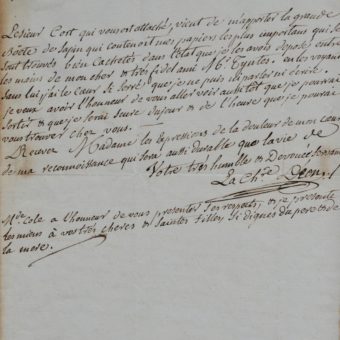 Le Sieur Cort qui vous est attaché, vient de m'apporter la grande
Boëte de sapin qui contenoit mes papiers les plus importans qui se
sont trouvés bien cachetés dans l'état que je les avois déposé entre
les mains de mon cher & très fidel ami Mr Eyules. en les voyant
sans lui j'ai le cœur si serré, que je ne puis ni parler ni écrire.
je veux avoir l'honneur de vous aller voir aussitôt que je pourrai
sortir & que je serai seure du jour & de l'heure que je pourrai
vous trouver chez vous.
Recevez Madame les expressions de la douleur de mon cœur &
de ma reconnoissance qui sera aussi durable que la vie de
Votre très humble & Devouée servante
La Chere Deon
Mde Cole a l'honneur de vous presenter ses respects, & je presente
les miens à vos très cheres & saintes filles si dignes du pere & de
la mere.